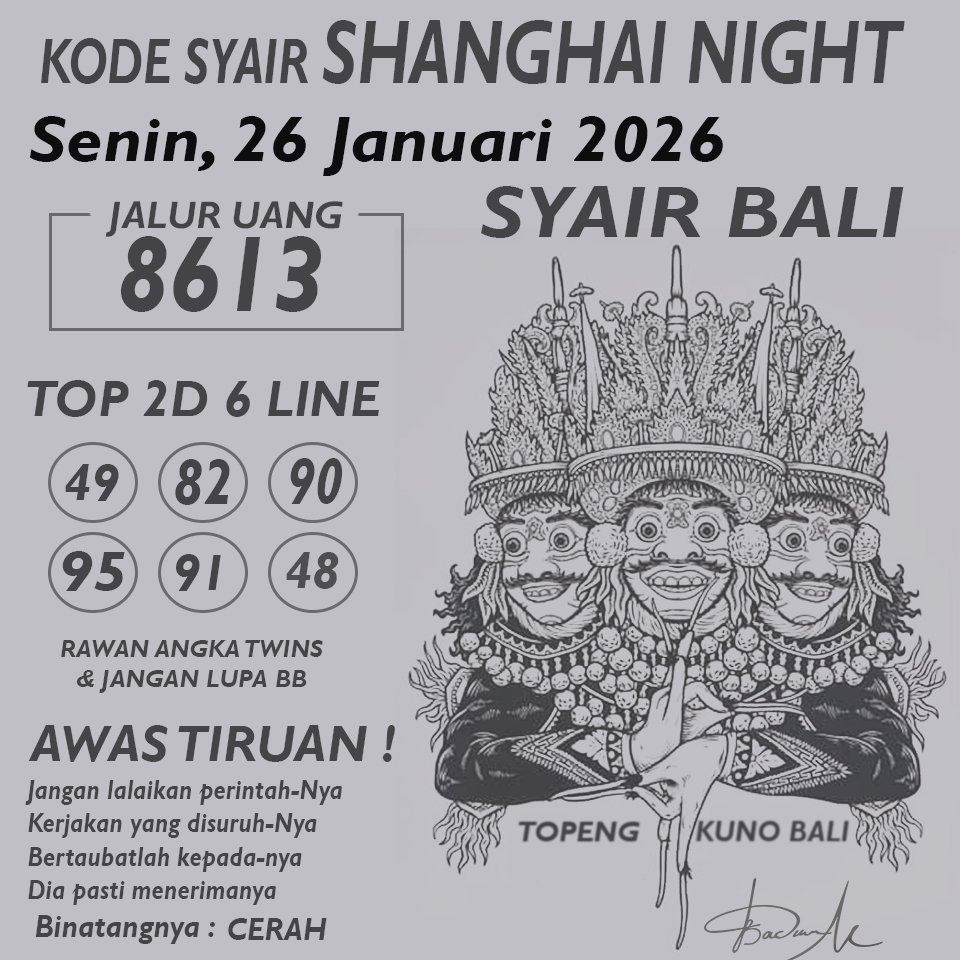 KODE SYAIR SHANGHAI NIGHT
Senin, 26 Januari 2026
SYAIR BALI
JALUR UANG
8613
TOP 2D 6 LINE
49 82 90
95 91 48
RAWAN ANGKA TWINS
& JANGAN LUPA BB
AWAS TIRUAN !
Jangan lalaikan perintah-Nya
Kerjakan yang disuruh-Nya
Bertaubatlah kepada-nya
Dia pasti menerimanya
Binatangnya : CERAH
TOPENG KUNO BALI